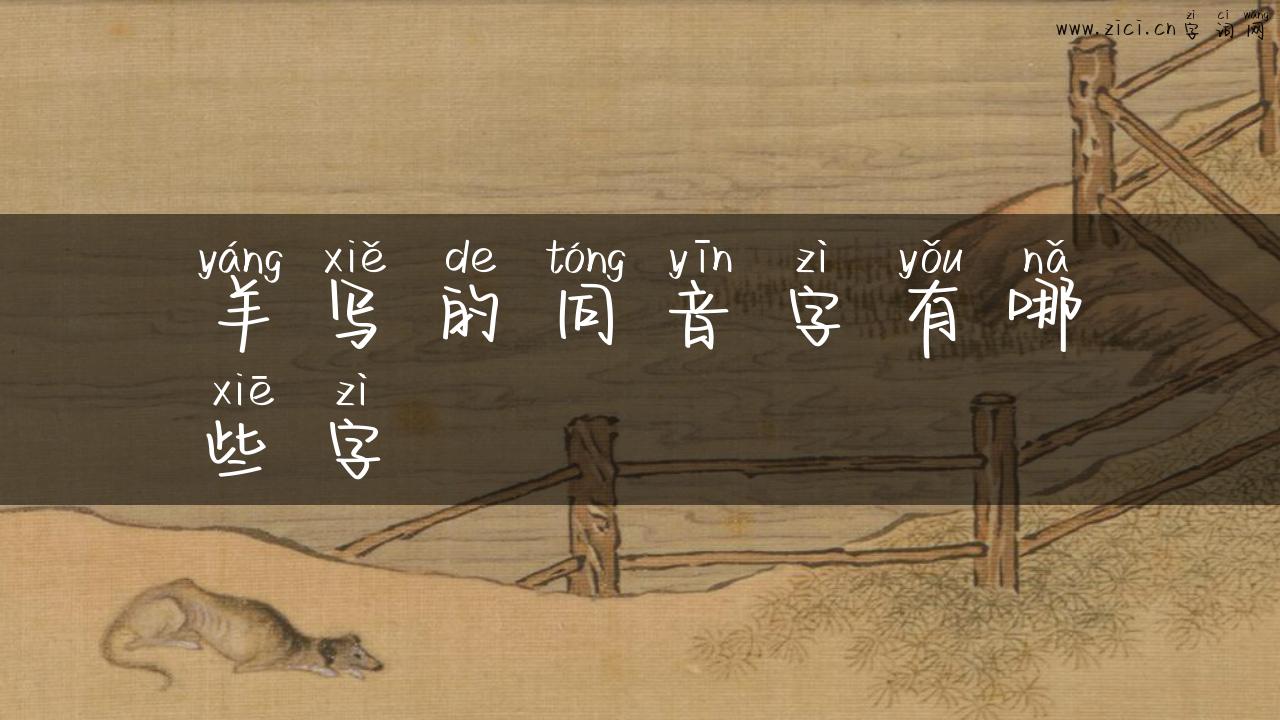 zì cí wǎng
www.zici.cn字词网
yáng xiě de tóng yīn zì yǒu nǎ
羊写的同音字有哪
xiē zì
些字